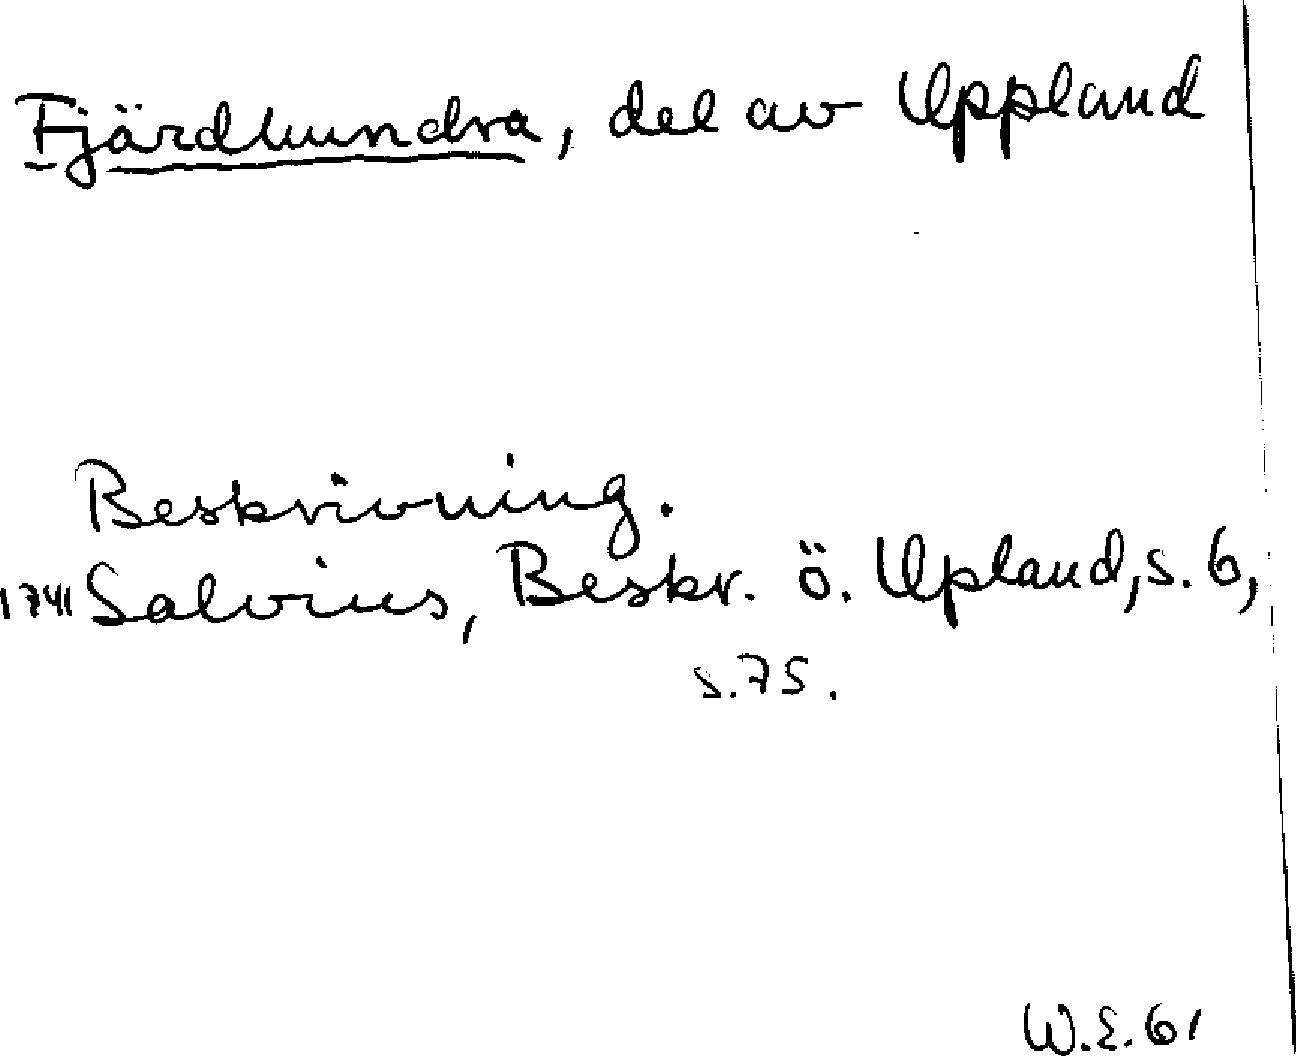 Fjärdhundra, del av Uppland
Beskrivning.
1741 Salvius, Beskr. ö. Upland, s. 6,
s. 75.
W.E. 61